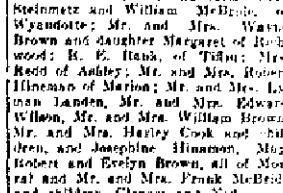 Steinmetz and William McBride, of
Wyandotte; Mr. and Mrs.
Brown and daughter Margaret of
wood; R. E. Hank, of Tiffin; Mrs.
Redd of Ashley; Mr. and Mrs. Robert
Hineman of Marion; Mr. and Mrs. Ly-
man Landen, Mr. and Mrs. Edward
Wilson, Mr. and Mrs. William Brown
Mr. and Mrs. Harley Cook and chil-
dren, and Josephine Hinamon, May
Robert and Evelyn Brown, all of Mor-
ral and Mr. and Mrs. Frank McBride
and children